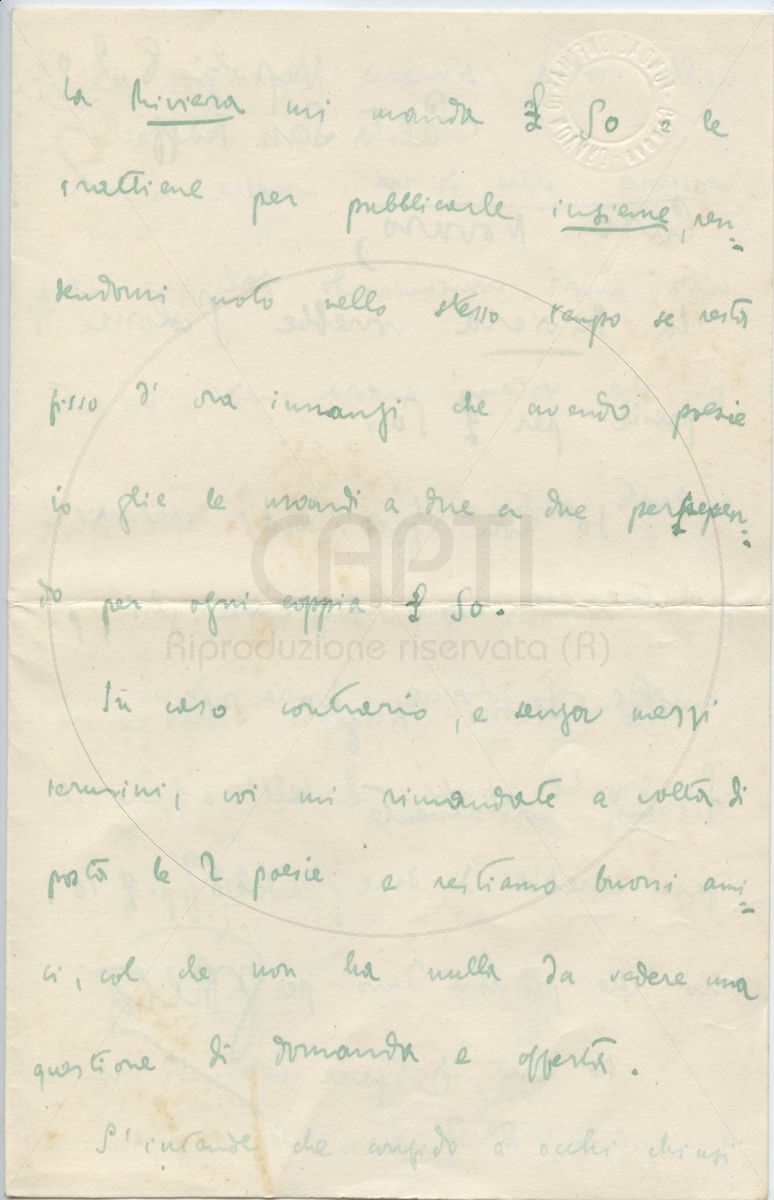 la Riviera mi manda £ 50 e le
trattiene per pubblicarle insieme, ren-
dendomi noto nello stesso tempo se resta
fisso d'ora innanzi che avendo poesie
io glie le mandi a due a due per
do, per ogni coppia £ 50.
In caso contrario, e senza mezzi
termini, voi mi rimandate a volta di
posta le 2 poesie e restiamo buoni ami-
ci, col che non ha nulla da vedere una
questione di domanda e offerta.
S'intende che confido a occhi chiusi
CAPTI
Riproduzione riservata (R)